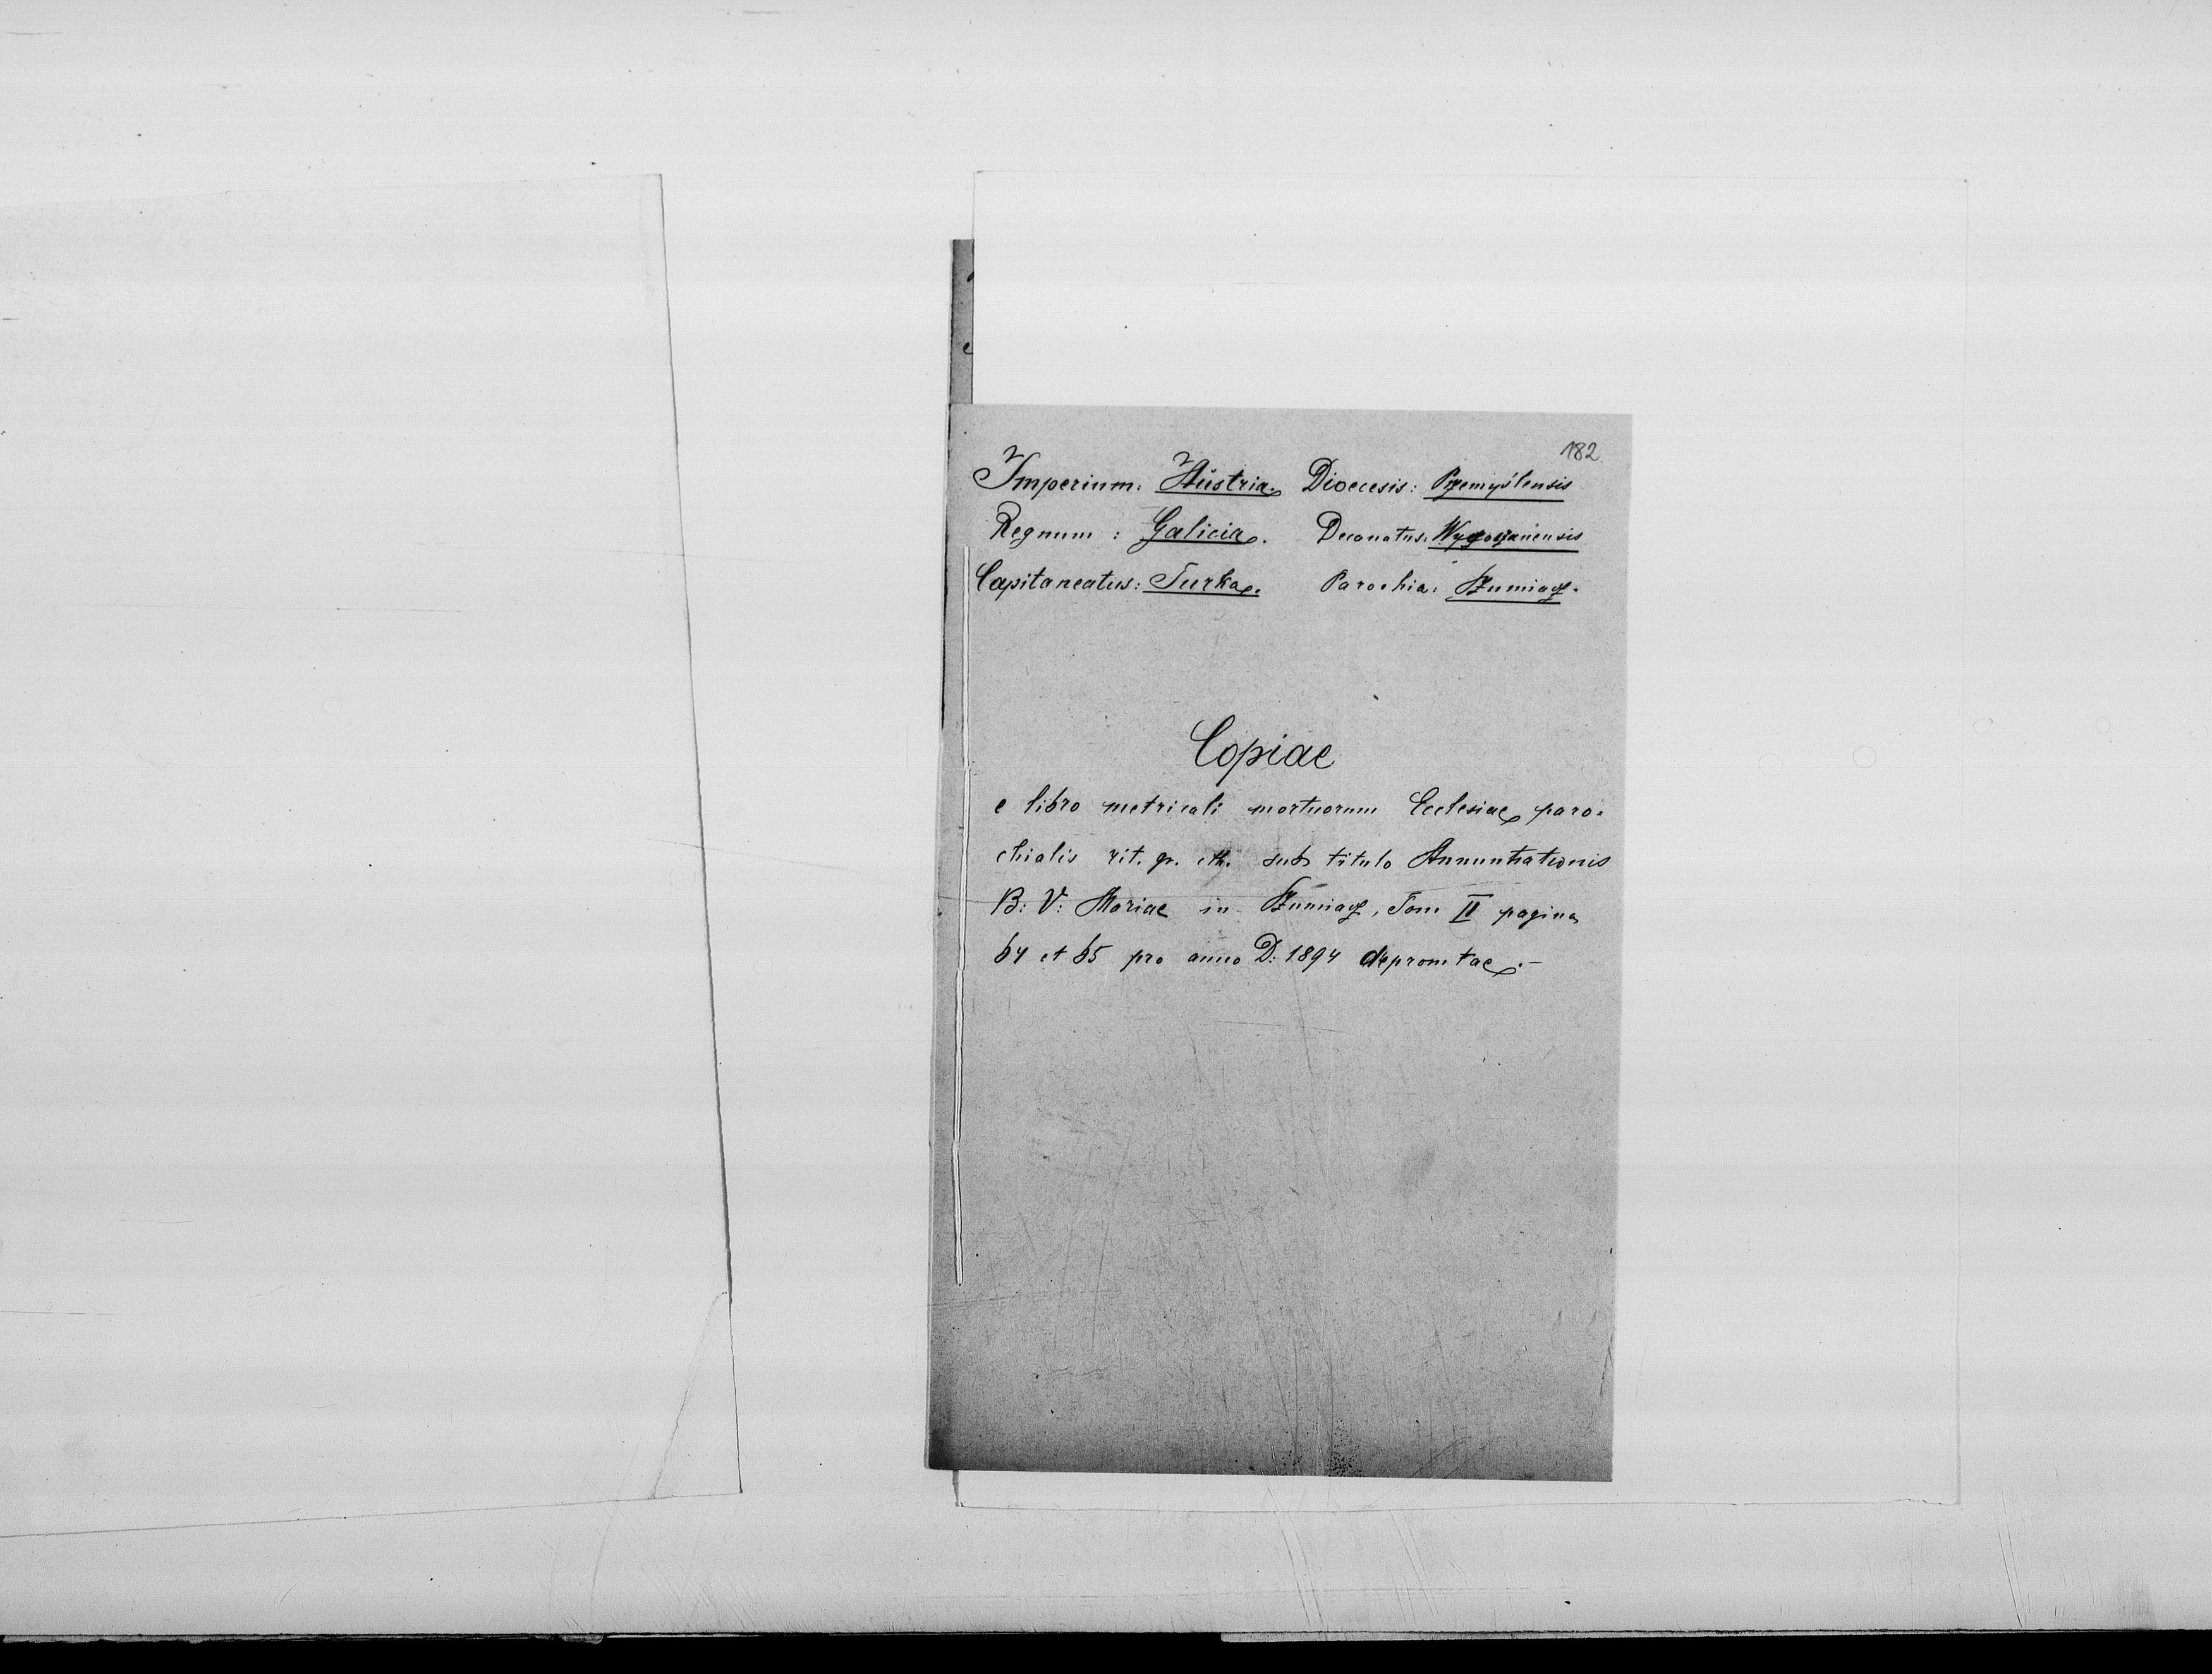 182
Imperium: Austria. Dioecesis: Przemyślensis
Regnum: Galicia. Decanatus: Wysoczanensis
Capitaneatus: Turka. Parochia: Szumiacz.
Copiae
e libro metricali mortuorum Ecclesiae paro-
chialis rit. gr. cth. sub titulo Annuntiationis
B: V: Mariae in Szumiacz, Tom II pagina
64 et 65 pro anno D: 1894 depromtae.-